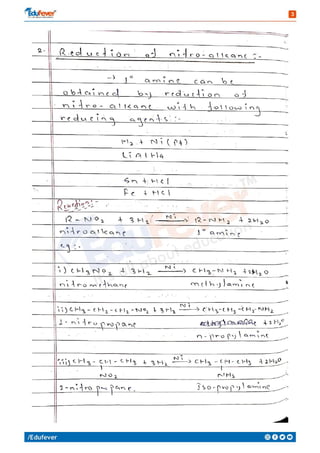 Edufever
3
2. Reduction of nitro-alkane :-
→ 1° amine can be
obtained by reduction of
nitro-alkane with following
reducing agents :-
H2 + Ni (Pt)
LiAlH4
Sn + HCl
Fe + HCl
Reaction:-
R-NO2 + 3H2 Ni → R-NH2 + 2H2O
nitroalkane 1° amine
eg :-
i) CH3NO2 + 3H2 Ni → CH3-NH2 + 2H2O
nitromethane methylamine
ii) CH3-CH2-CH2-NO2 + 3H2 Ni → CH3-CH2-CH2-NH2
1-nitropropane + 2H2O
n-propylamine
iii) CH3-CH-CH3 + 3H2 Ni → CH3-CH-CH3 + 2H2O
NO2 NH2
2-nitropropane. Iso-propylamine
/Edufever